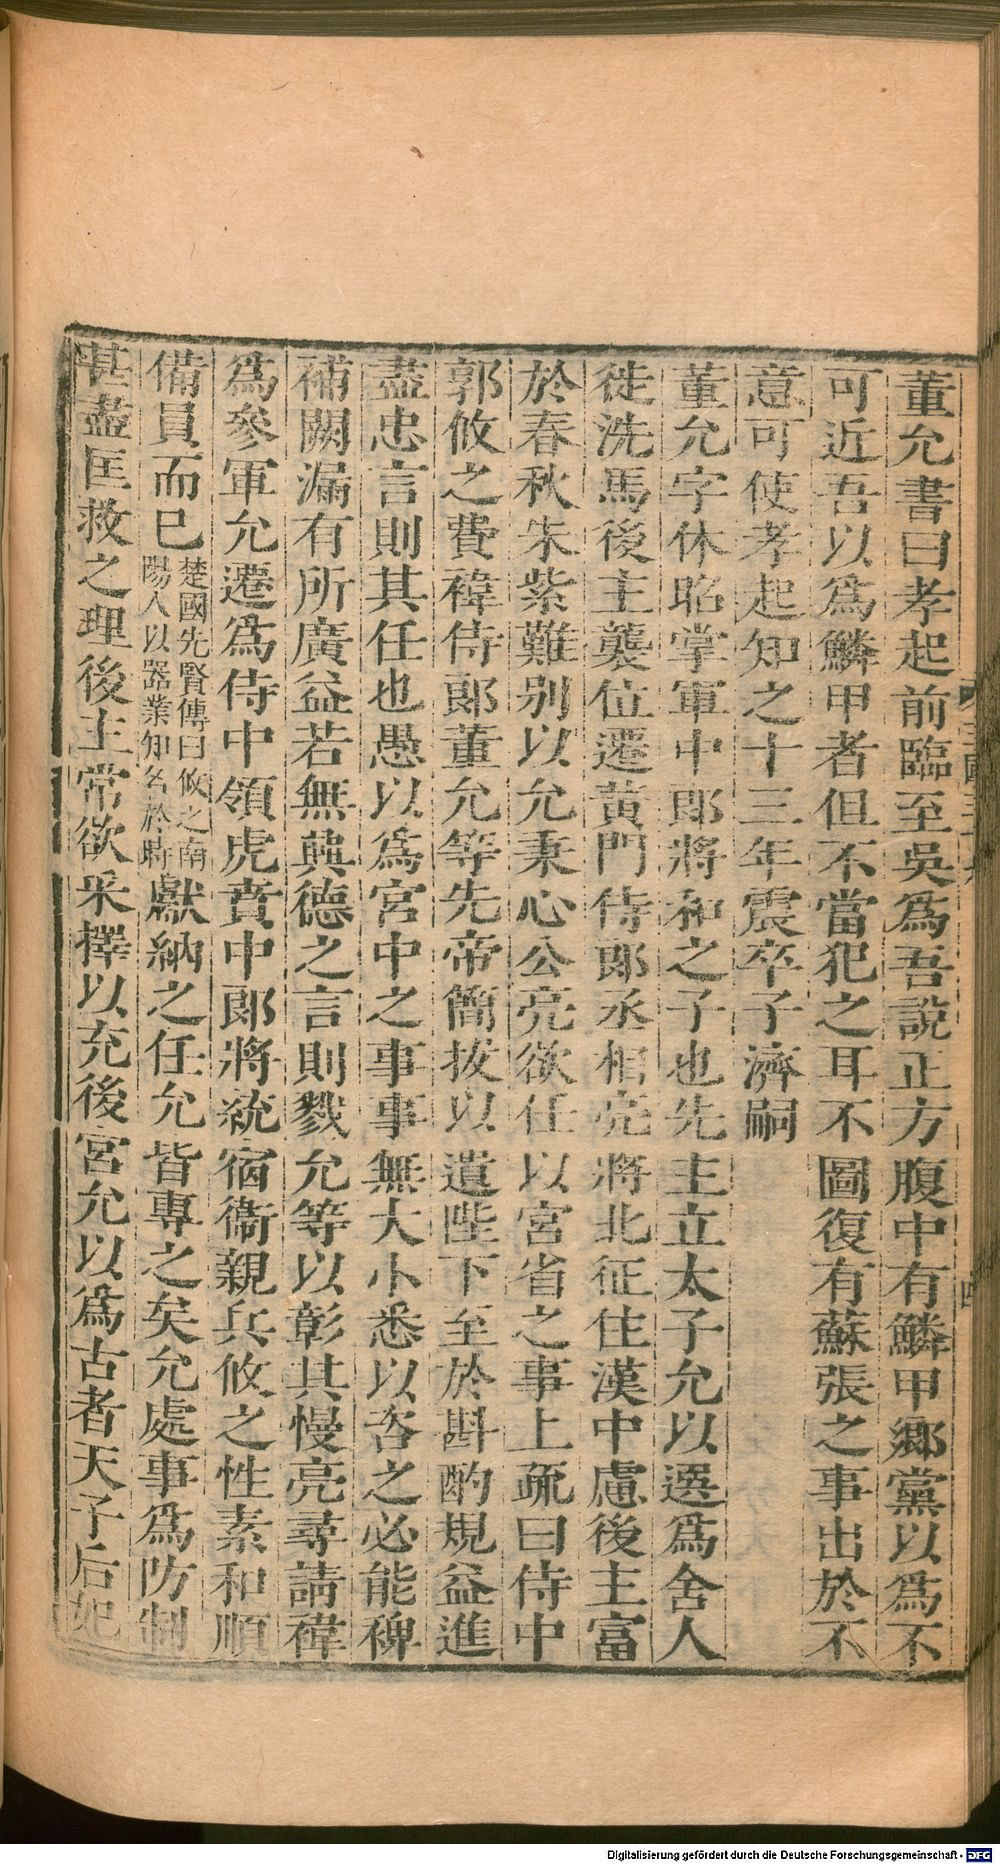 董允書曰孝起前臨至吳爲吾說正方腹中有鱗甲鄉黨以爲不
可近吾以爲鱗甲者但不當犯之耳不圖復有蘇張之事出於不
意可使孝起知之十三年震卒子濟嗣
董允字休昭掌軍中郎將和之子也先主立太子允以選爲舍人
徙洗馬後主襲位遷黃門侍郎丞相亮將北征住漢中慮後主富
於春秋朱紫難別以允秉心公亮欲任以宮省之事上疏曰侍中
郭攸之費禕侍郎董允等先帝簡拔以遺陛下至於斟酌規益進
盡忠言則其任也愚以爲宮中之事事無大小悉以咨之必能裨
補闕漏有所廣益若無興德之言則戮允等以彰其慢亮尋請禕
爲參軍允遷爲侍中領虎賁中郎將統宿衞親兵攸之性素和順
備員而已楚國先賢傳曰攸之南陽人以器業知名於時獻納之任允皆專之矣允處事爲防制
甚盡匡救之理後主常欲采擇以充後宮允以爲古者天子后妃
Digitalisierung gefördert durch die Deutsche Forschungsgemeinschaft - DFG